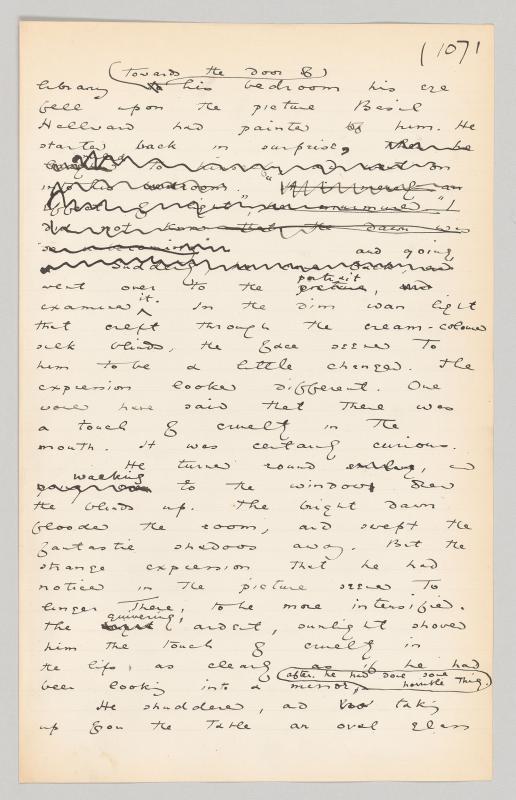 (107)
(towards the door of)
library to his bedroom his eye
fell upon the picture Basil
Hallward had painted of him. He
started back in surprise,
to himself and went on
into his bedroom.
effect of light", he murmured "I
did not know that the dawn was
and going
Suddenly
portrait
went over to the picture, and
examined it. In the dim wan light
that crept through the cream-coloured
silk blinds, the face seemed to
him to be a little changed. The
expression looked different. One
would have said that there was
a touch of cruelty in the
mouth. It was certainly curious.
He turned round, and
walking
to the window drew
the blinds up. The bright dawn
flooded the room, and swept the
fantastic shadows away. But the
strange expression that he had
noticed in the picture seemed to
linger there, to be more intensified.
quivering,
The ardent, sunlight showed
him the touch of cruelty in
the lips, as clearly as if he had
after he had done some
been looking into a mirror, horrible thing.
He shuddered, and taking
up from the table an oval glass